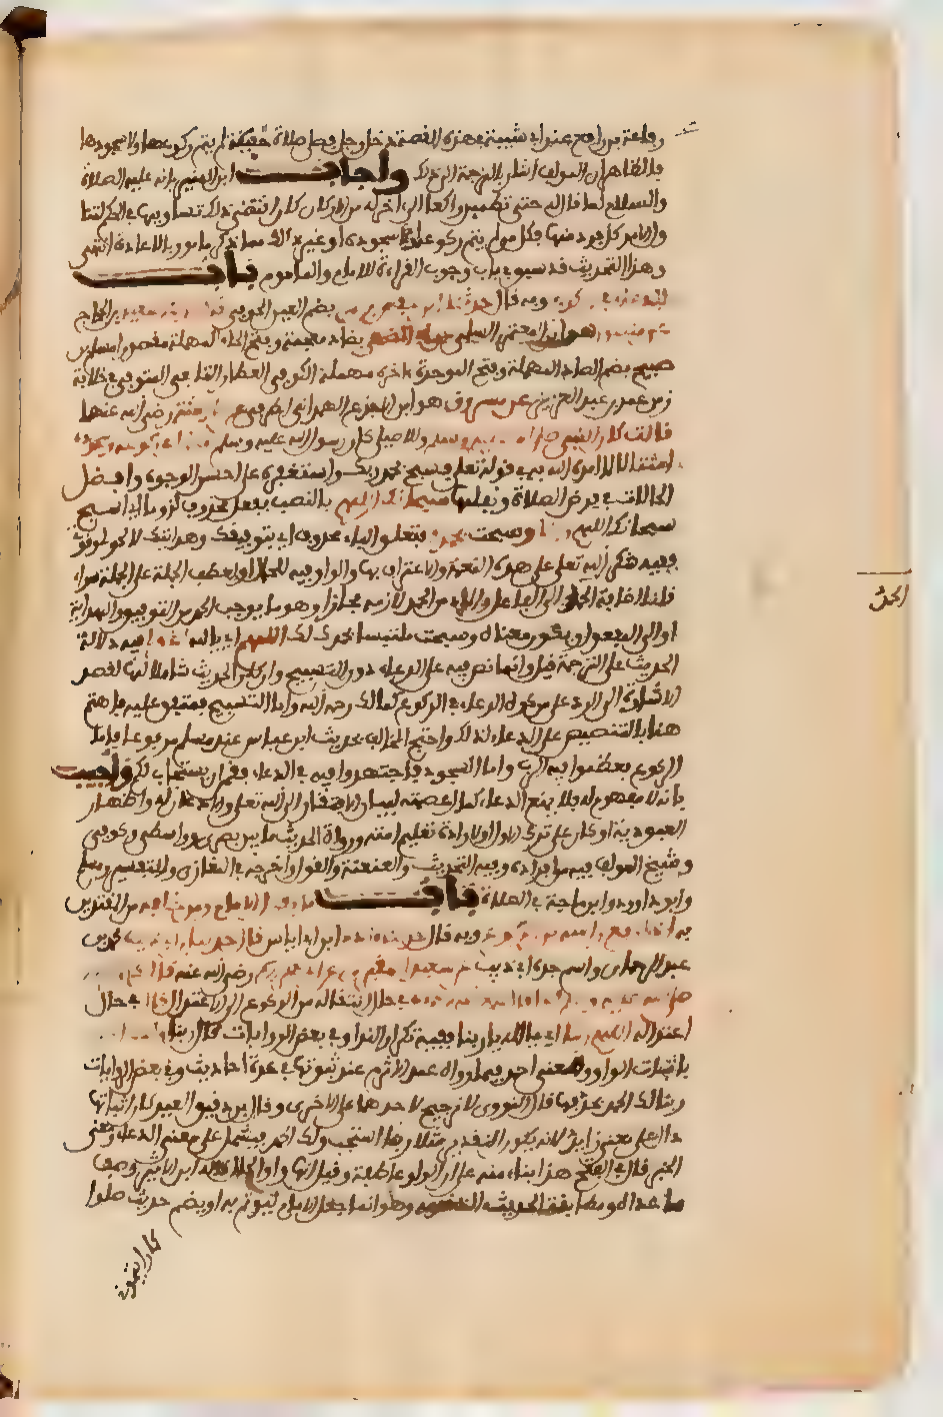 رفاعة بن رافع عند ابن أبي شيبة في هذه القصة دخل رجل فصلى صلاة خفيفة لم يتم ركوعها ولا سجودها
فالظاهر ان المولف اشار بالترجمة الى ذلك واجاب ابن المنير بانه عليه الصلاة
والسلام لما قال له حتى تطمين راكعا الى اخر له من الاركان كان اقتضى ذلك تساويها في الحكم لتناول
والامر كل فرد منها فكل من لم يتم ركوعه او سجوده او غير ذلك مما ذكر مامور بالاعادة انتهى
وهذا الحديث قد سبق في باب وجوب القراءة للامام والماموم باب
الدعاء في الركوع وبه قال حدثنا حفص بن عمر بضم العين الحوضي قال حدثنا شعبة بن الحجاج
عن منصور هو ابن المعتمر السلمي عن ابي الضحى بضاد معجمة وفتح الحاء المهملة مقصور مسلم بن
صبيح بضم الصاد المهملة وفتح الموحدة اخره مهملة الكوفي العطار التابعي المتوفى في خلافة
زمن عمر بن عبد العزيز عن مسروق هو ابن الاجدع الهمداني الكوفي عن عايشة رضي الله عنها
قالت كان النبي صلى الله عليه وسلم وللاصيلي كان رسول الله عليه وسلم يقول في ركوعه وسجوده
امتثالا لما امره الله به في قوله تعلى فسبح بحمد ربك واستغفره على احسن الوجوه وافضل
الحالات في فرض الصلاة ونفلها سبحانك اللهم بالنصب بفعل محذوف لزوما اي اسبح
سبحانك اللهم ربنا وسبحت بحمدك فتعلق الباء محذوف اي بتوفيقك وهدايتك لا بحولي وقوتي
ففيه شكر الله تعلى على هذه النعمة والاعتراف بها والواو فيه للحال او لعطف الجملة على الجملة سواء
قلنا اضافة الحمد الى الفاعل والمراد من الحمد لازمه مجازا وهو ما يوجب الحمد من التوفيق والهداية
او الى المفعول ويكون معناه وسبحت ملتبسا بحمدي لك اللهم اي يا الله اغفر لي فيه دلالة
الحديث على الترجمة قيل وانما نص فيه على الدعاء دون التسبيح وان كان الحديث شاملا لهما لقصد
الاشارة الى الرد على من كره الدعاء في الركوع كمالك رحمه الله واما التسبيح فمتفق عليه فاهتم
هنا بالتنصيص على الدعاء لذلك واحتج المخالف بحديث ابن عباس عند مسلم مرفوعا فاما
الركوع فعظموا فيه الرب واما السجود فاجتهدوا فيه في الدعاء فقمن ان يستجاب لكم واجيب
بانه لا مفهوم له فلا يمنع الدعاء كما لعصمته لبيان الافتقار الى الله تعلى والاذعان له واظهار
العبودية او كان على ترك الاولى او لارادة تعليم امته ورواة الحديث ما بين بصري وواسطي وكوفي
وشيخ المولف فيه من افراده وفيه التحديث والعنعنة والقول واخرجه في المغازي والتفسير ومسلم
وابو داوود وابن ماجة في الصلاة باب ما يقول الامام ومن خلفه من المقتدين
به اذا رفع راسه من الركوع وبه قال حدثنا ادم ابن ابي اياس قال حدثنا ابن ابي ذيب محمد بن
عبد الرحمان واسم جده ابي ذيب عن سعيد المقبري عن ابي هريرة رضي الله عنه قال كان النبي
صلى الله عليه وسلم اذا قال سمع الله لمن حمده في حال انتقاله من الركوع الى الاعتدال قال في حال
اعتداله اللهم ربنا اي يا الله يا ربنا ففيه تكرار النداء وفي بعض الروايات قال ربنا ولك الحمد
باثبات الواو ونص احمد فيما رواه عنه الاثرم عند ثبوتها في عدة احاديث وفي بعض الروايات
ربنا لك الحمد بحذفها قال النووي لا ترجيح لاحدهما على الاخرى وقال ابن دقيق العيد كان اثباتها
دال على معنى زايد لانه يكون التقدير مثلا ربنا استجب ولك الحمد فيشمل على معنى الدعاء ومعنى
الخبر قال في الفتح هذا بناء منه على ان الواو عاطفة وقيل انها واو الحال قاله ابن الاثير وضعف
ما عداه ومطابقة الحديث وهو انما جعل الامام ليوتم به او يضم حديث صلوا
كما رايتموني
الحمد